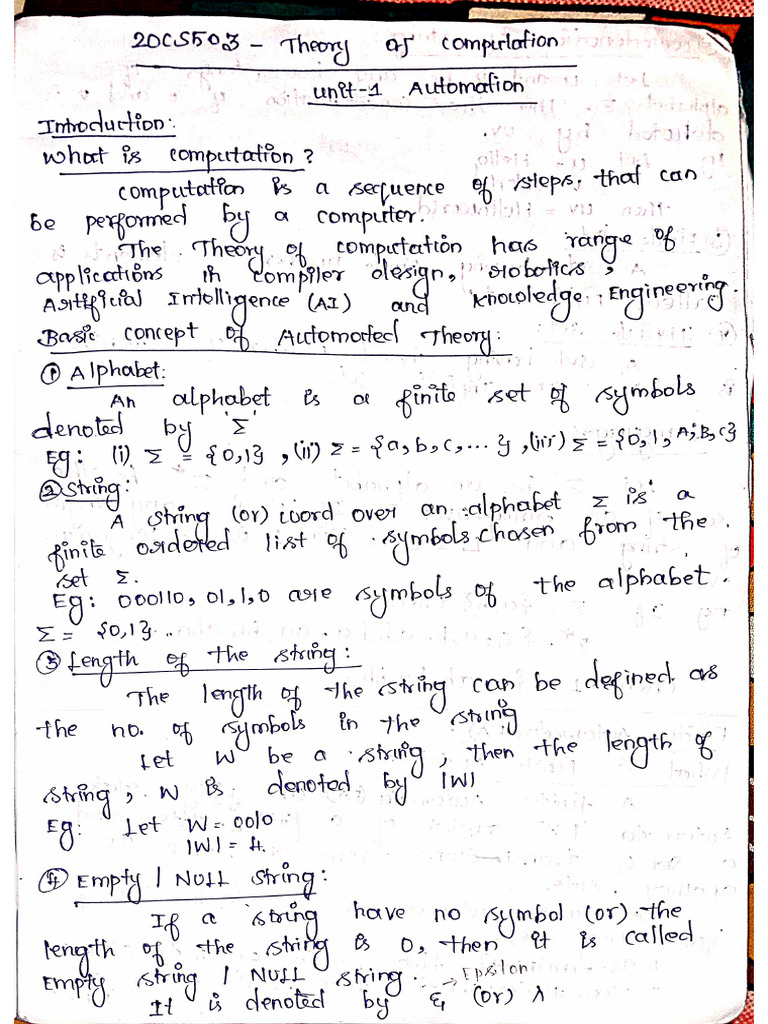 20CS503 - Theory of Computation
Unit-1 Automation
Introduction:
What is computation?
computation is a sequence of steps, that can
be performed by a computer.
The Theory of computation has range of
applications in compiler design, robotics,
Artificial Intelligence (AI) and knowledge Engineering.
Basic concept of Automated Theory:
① Alphabet:
An alphabet is a finite set of symbols
denoted by 'Σ'
Eg: (i) Σ = {0,1}, (ii) Σ = {a, b, c, ...}, (iii) Σ = {0, 1, A, B, C}
② String:
A string (or) word over an alphabet Σ is a
finite ordered list of symbols chosen from the
set Σ.
Eg: 000110, 01, 1, 0 are symbols of the alphabet.
Σ = {0,1}.
③ Length of the string:
The length of the string can be defined as
the no. of symbols in the string
Let W be a string, then the length of
string, W is denoted by |W|
Eg: Let W = 0010
|W| = 4.
④ Empty / NULL string:
If a string have no symbol (or) the
length of the string is 0, then it is called
Empty string / NULL string.
→ Epsilon
It is denoted by ε, (or) λ